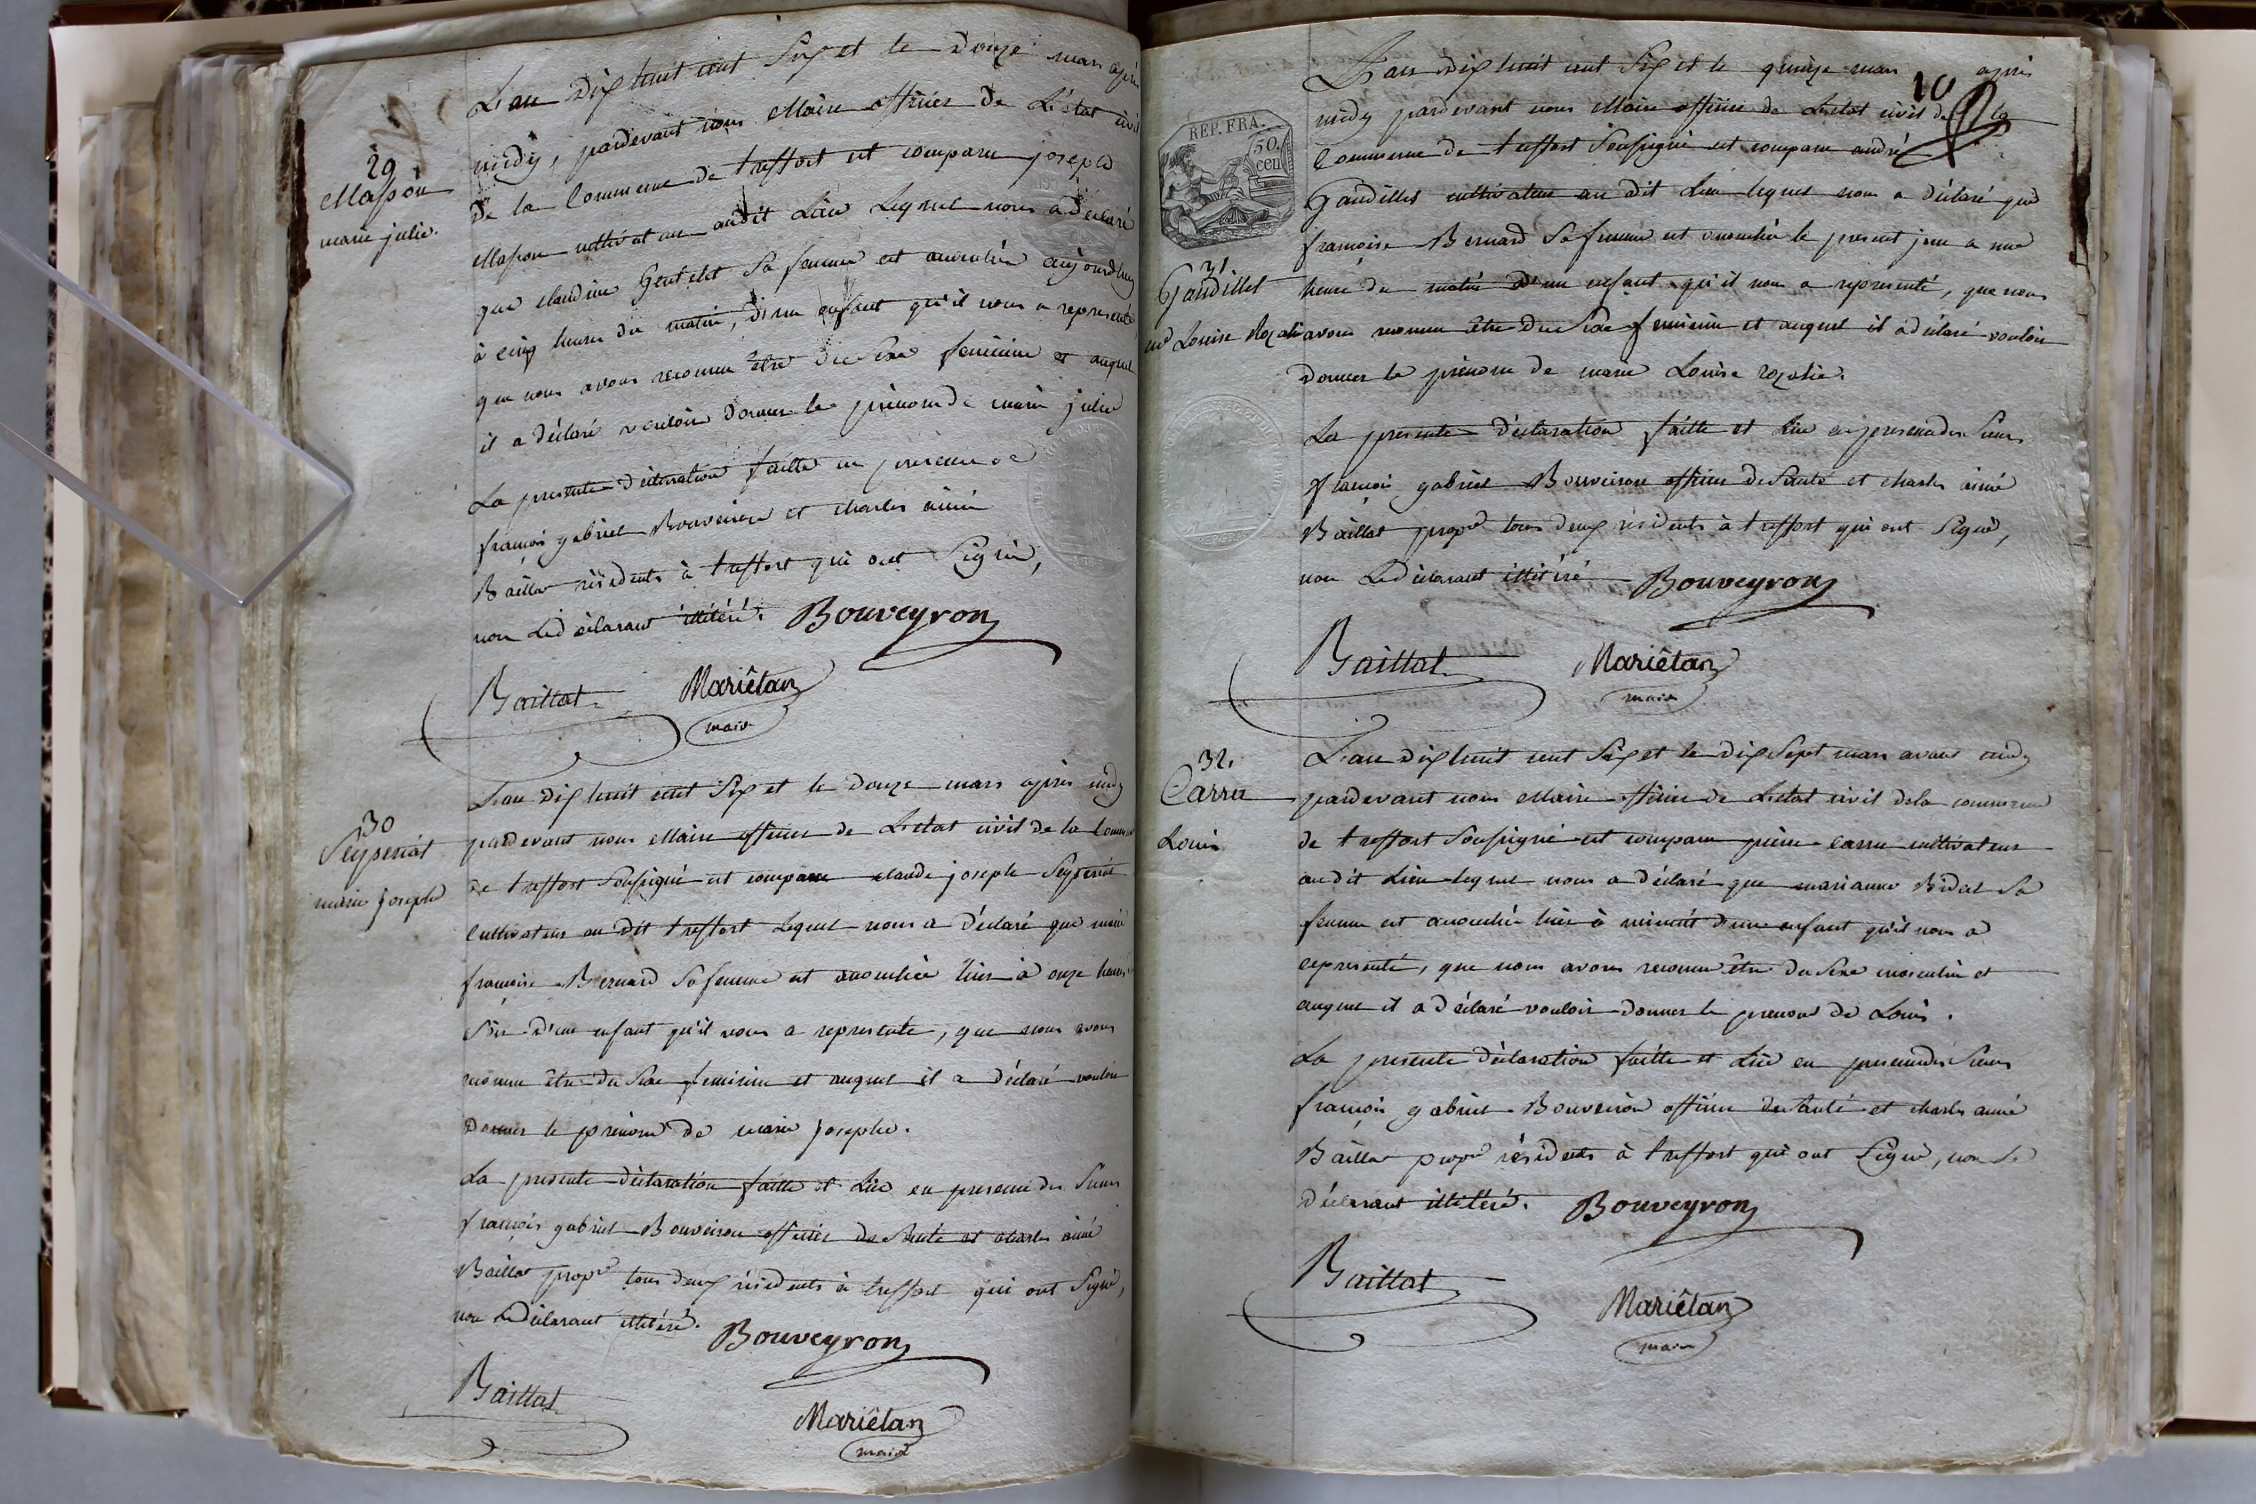 29
Masson
marie julie.
L'an dix huit cent Six et le douze mars après
midy, pardevant nous Maire officier de L'état civil
de la Commune de treffort est comparu joseph
Masson cultivateur audit Lieu Lequel nous a déclaré
que claudine Gentelet Sa femme est accouchée aujourdhuy
à cinq heures du matin, d'un enfant qu'il nous a représenté
que nous avons reconnu être du Sexe feminin et auquel
il a déclaré vouloir donner le prénom de marie julie
La presente déclaration faitte en presence de
françois gabriel Bouveiron et charles aimé
Baillat résidents à treffort qui ont Signé,
non Le déclarant illitéré. Bouveyron
Baillat Mariétan
maire
30
Seyseriat
marie josephe
L'an dix huit cent Six et le douze mars après midy
pardevant nous Maire officier de L'état civil de la Commune
de treffort Soussigné est comparu claude joseph Seyseriat
Cultivateur au dit treffort Lequel nous a déclaré que marie
françoise Bernard Sa femme est accouchée hier à onze heures
Soir d'un enfant qu'il nous a représenté, que nous avons
reconnu être du Sexe feminin et auquel il a déclaré vouloir
donner le prénom de marie josephe.
La presente déclaration faitte et Lue en presence des Sieurs
françois gabriel Bouveiron officier de Santé et charles aimé
Baillat prop.re tous deux résidents à treffort qui ont Signé,
non Le déclarant illitéré. Bouveyron
Baillat
Mariétan
maire
10
REP. FRA.
50.
cen
31
Gandillet
Louise Rozalie
L'an dix huit cent Six et le quinze mars après
midy pardevant nous Maire officier de L'état civil de la
Commune de treffort Soussigné est comparu andré
Gandillet cultivateur au dit Lieu lequel nous a déclaré que
françoise Bernard Sa femme est accouchée le present jour a une
heure du matin d'un enfant qu'il nous a représenté, que nous
avons reconnu être du Sexe feminin et auquel il a déclaré vouloir
donner le prénom de marie Louise rozalie.
La presente déclaration faitte et Lue en presence des Sieurs
françois gabriel Bouveiron officier de Santé et charles aimé
Baillat prop.re tous deux résidents à treffort qui ont Signé,
non Le déclarant illitéré Bouveyron
Baillat Mariétan
maire
32.
Carru
Louis
L'an dix huit cent Six et le dix Sept mars avant midy
pardevant nous Maire officier de L'état civil de la commune
de treffort Soussigné est comparu pierre Carru cultivateur
audit Lieu lequel nous a déclaré que marianne Bidat Sa
femme est accouchée hier à minuit d'un enfant qu'il nous a
représenté, que nous avons reconnu être du Sexe masculin et
auquel il a déclaré vouloir donner le prenom de Louis.
La presente déclaration faitte et Lue en presence des Sieurs
françois gabriel Bouveiron officier de Santé et charles aimé
Baillat prop.re résidents à treffort qui ont Signé, non Le
déclarant illitéré. Bouveyron
Baillat
Mariétan
maire